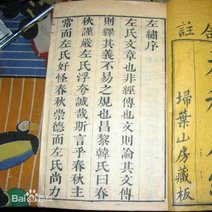 左繡序
左氏文章也非經傳也文則論其文傳
則繹其義不易之規也昌黎韓氏曰春
秋謹嚴左氏浮夸誠哉斯言乎春秋主
常而左氏好怪春秋崇德而左氏尚力
註
掃葉山房藏板
Bai 百科